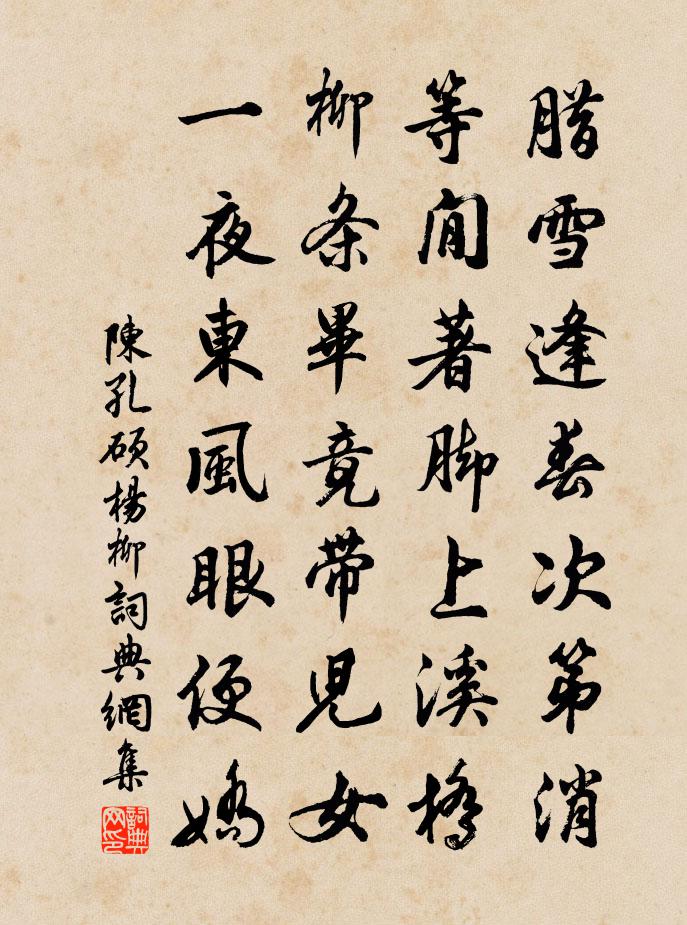 腊雪逢春次第消
等閒著脚上溪橋
柳条畢竟帶児女
一夜東風眼便嬌
陳孔硕楊柳詞典網集
詞典网印